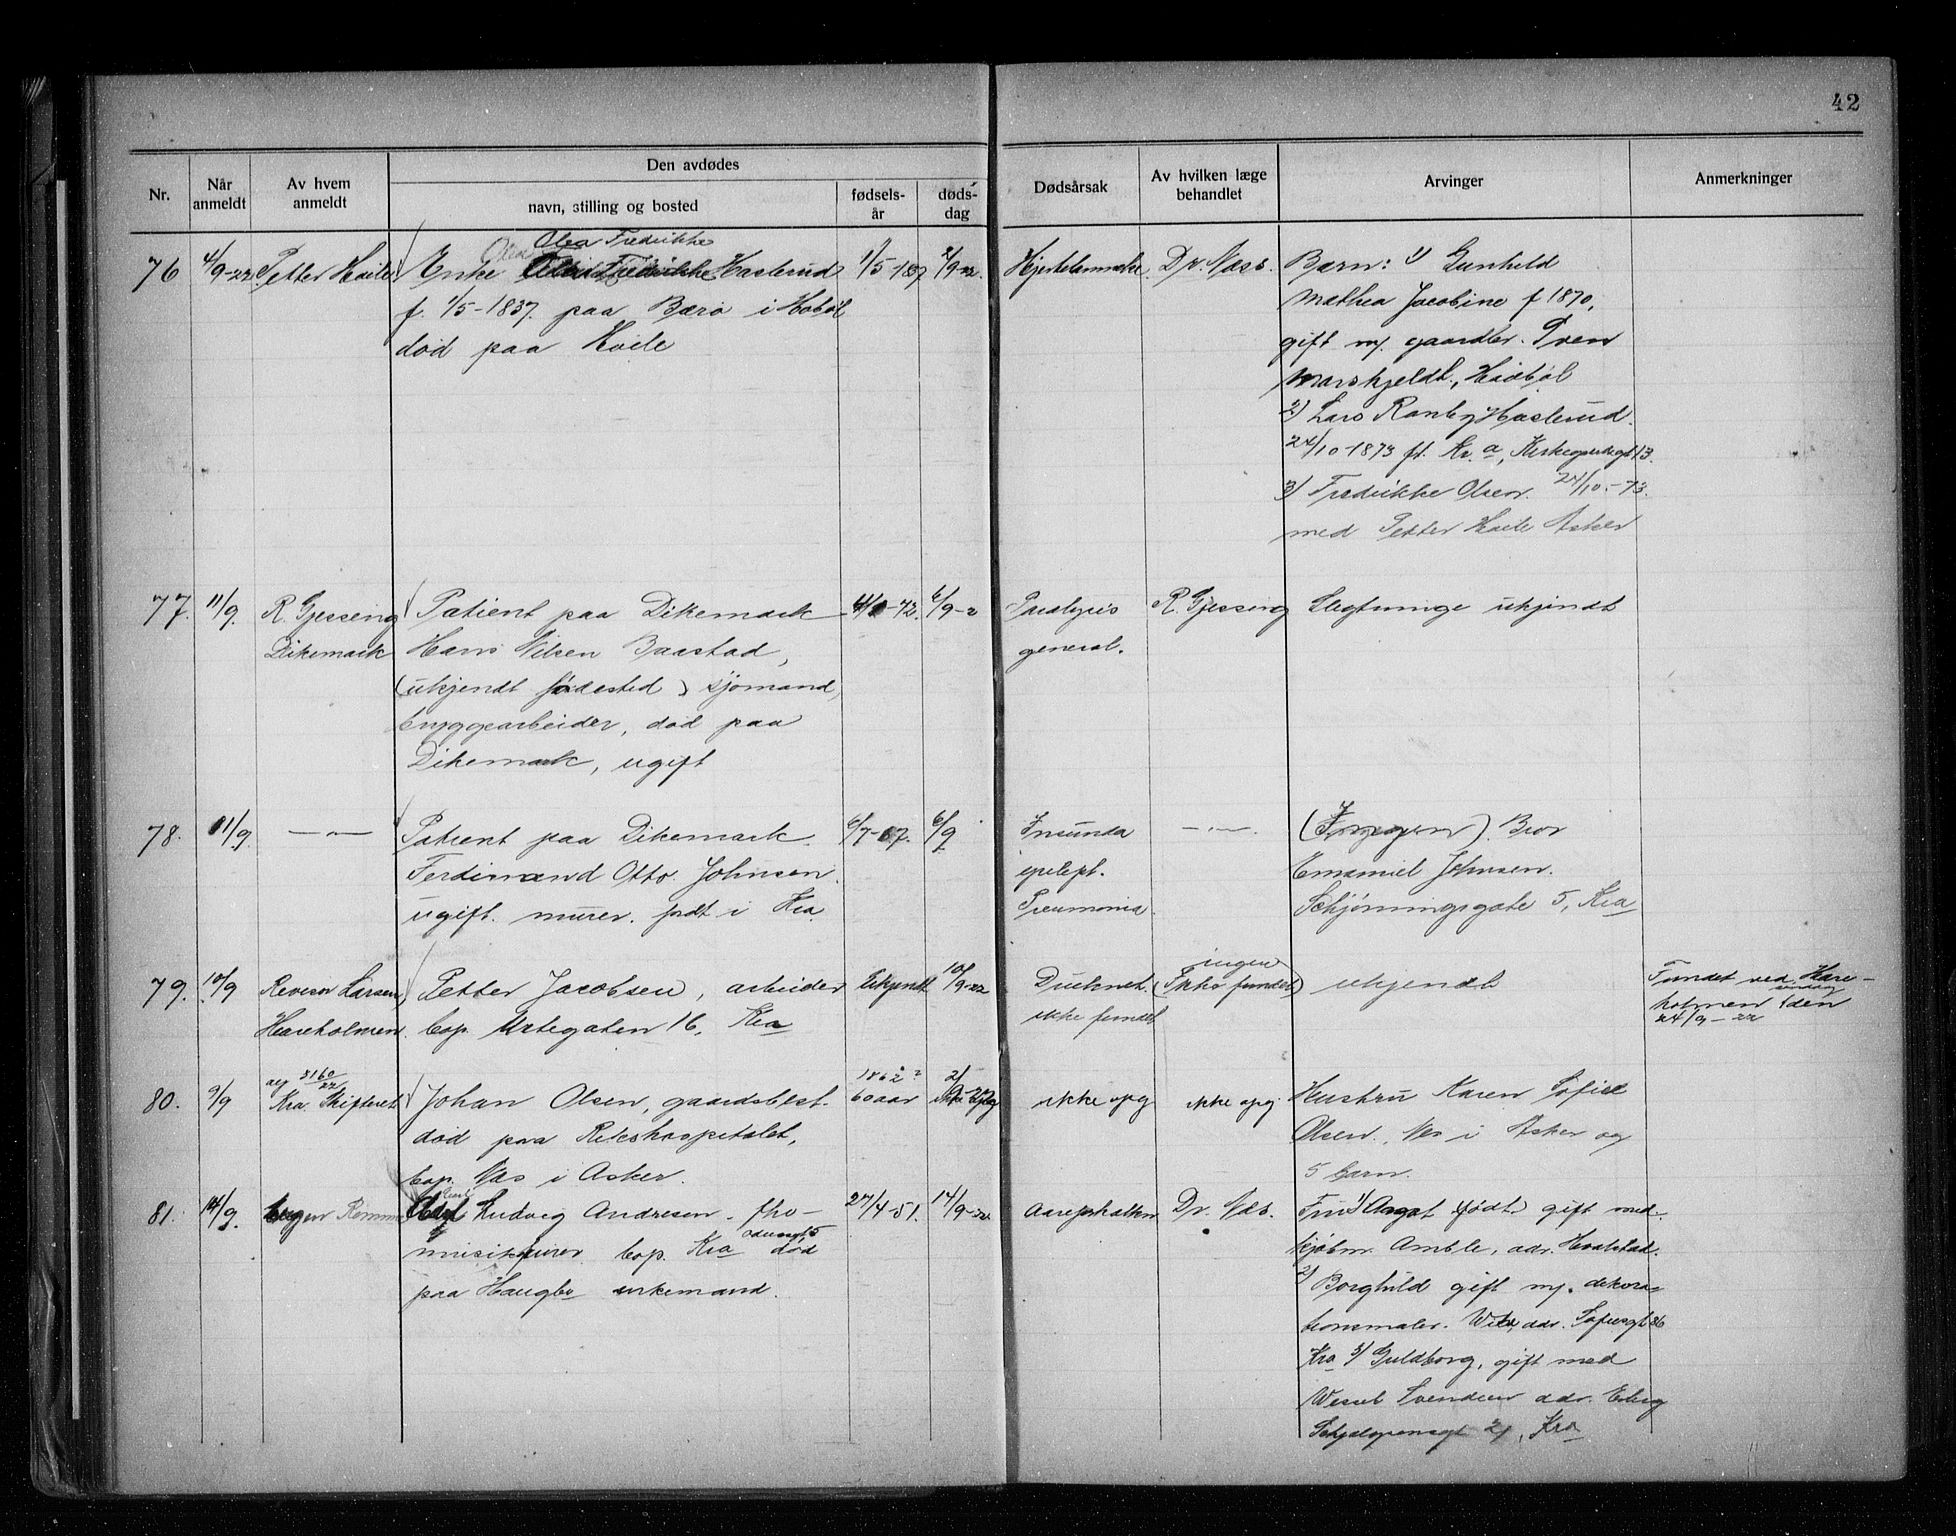 42
Den avdødes
Nr.
Når anmeldt
Av hvem anmeldt
navn, stilling og bosted
fødsels-år
døds-dag
Dødsårsak
Av hvilken læge behandlet
Arvinger
Anmerkninger
76 4/9-22 Petter Hvile
Olea Fredrikke
Enke Hasterud
f. 1/5-1837. paa Bærø i Hobøl
død paa Hvile
1/5-1837 2/9-22.
Hjertelammelse Dr. Næss.
Barn: 1) Gunhild
Mathea Jacobine f 1870,
gift m/. gaardbr.
Haabøl
2) Lars Ranby Hasterud.
24/10-1873 Kr.a,
3) Fredrikke Olsen. 24/10.-73.
med Petter Hvile Asker
77. 11/9.
R. Gjessing
Dikemark
Patient paa Dikemark
Hans Nilsen Baastad,
(ukjendt fødested) sjømand,
bryggearbeider, død paa
Dikemark, ugift
6/9-2
Paralysis
general.
R. Gjessing
Slegtninge ukjendt
78. 11/9 — " —
Patient paa Dikemark.
Ferdinand Otto Johnsen.
ugift. murer. født i Kra.
6/9
epilept.
Pneumonia.
— " —.
Bror
Emanuel Johnsen.
Schjønningsgate 5, Kra
79. 10/9
Revisor Larsen,
Hareholmen.
Petter Jacobsen, arbeider
bop. Urtegaten 16, Kra
Ukjendt 10/9-22
Druknet.
ikke fundet
ingen
ukjendt
Fundet ved Hare-
holmen søndag den
24/9-22
80. 9/9
3160/22
Kra. Skifteret
Johan Olsen, gaardsbest.
død paa Rikshospitalet,
bop. Næs i Asker.
1862?
60 aar
2/9-22
ikke opg
ikke opg
Hustru Karen Sofie
Olsen, Nes i Asker og
5 barn.
81. 14/9.
Ludvig Andresen. fho-
musiker bop. Kra død
paa Haugbo enkemand.
27/4-51. 14/9-22
Aareforkalkn
Dr. Næs.
Fru 1) Aagot født gift med.
kjøbm. Amble, adr. Hvalstad.
2) Borghild gift m/. dekora-
tionsmaler. adr. Sofiesgt 86
Kra 3) Guldborg, gift med
Wessel Svendsen adr.
Kra